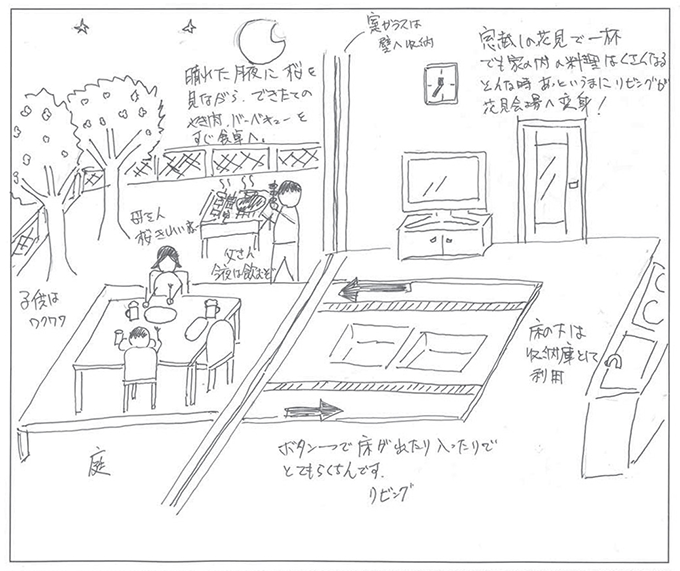 窓ガラスは
壁へ収納
窓越しの花見で一杯
でも家の内の料理はくさくなる
そんな時あっというまにリビングが
花見会場へ変身!
晴れた月夜に桜を
見ながら、できたての
やき肉、バーベキューを
すぐ食卓へ。
母さん
桜きれいね
父さん
今夜は飲むぞ
子供は
ワクワク
床の下は
収納庫として
利用
庭
ボタン一つで床が出たり入ったりで
とてもらくちんです。
リビング